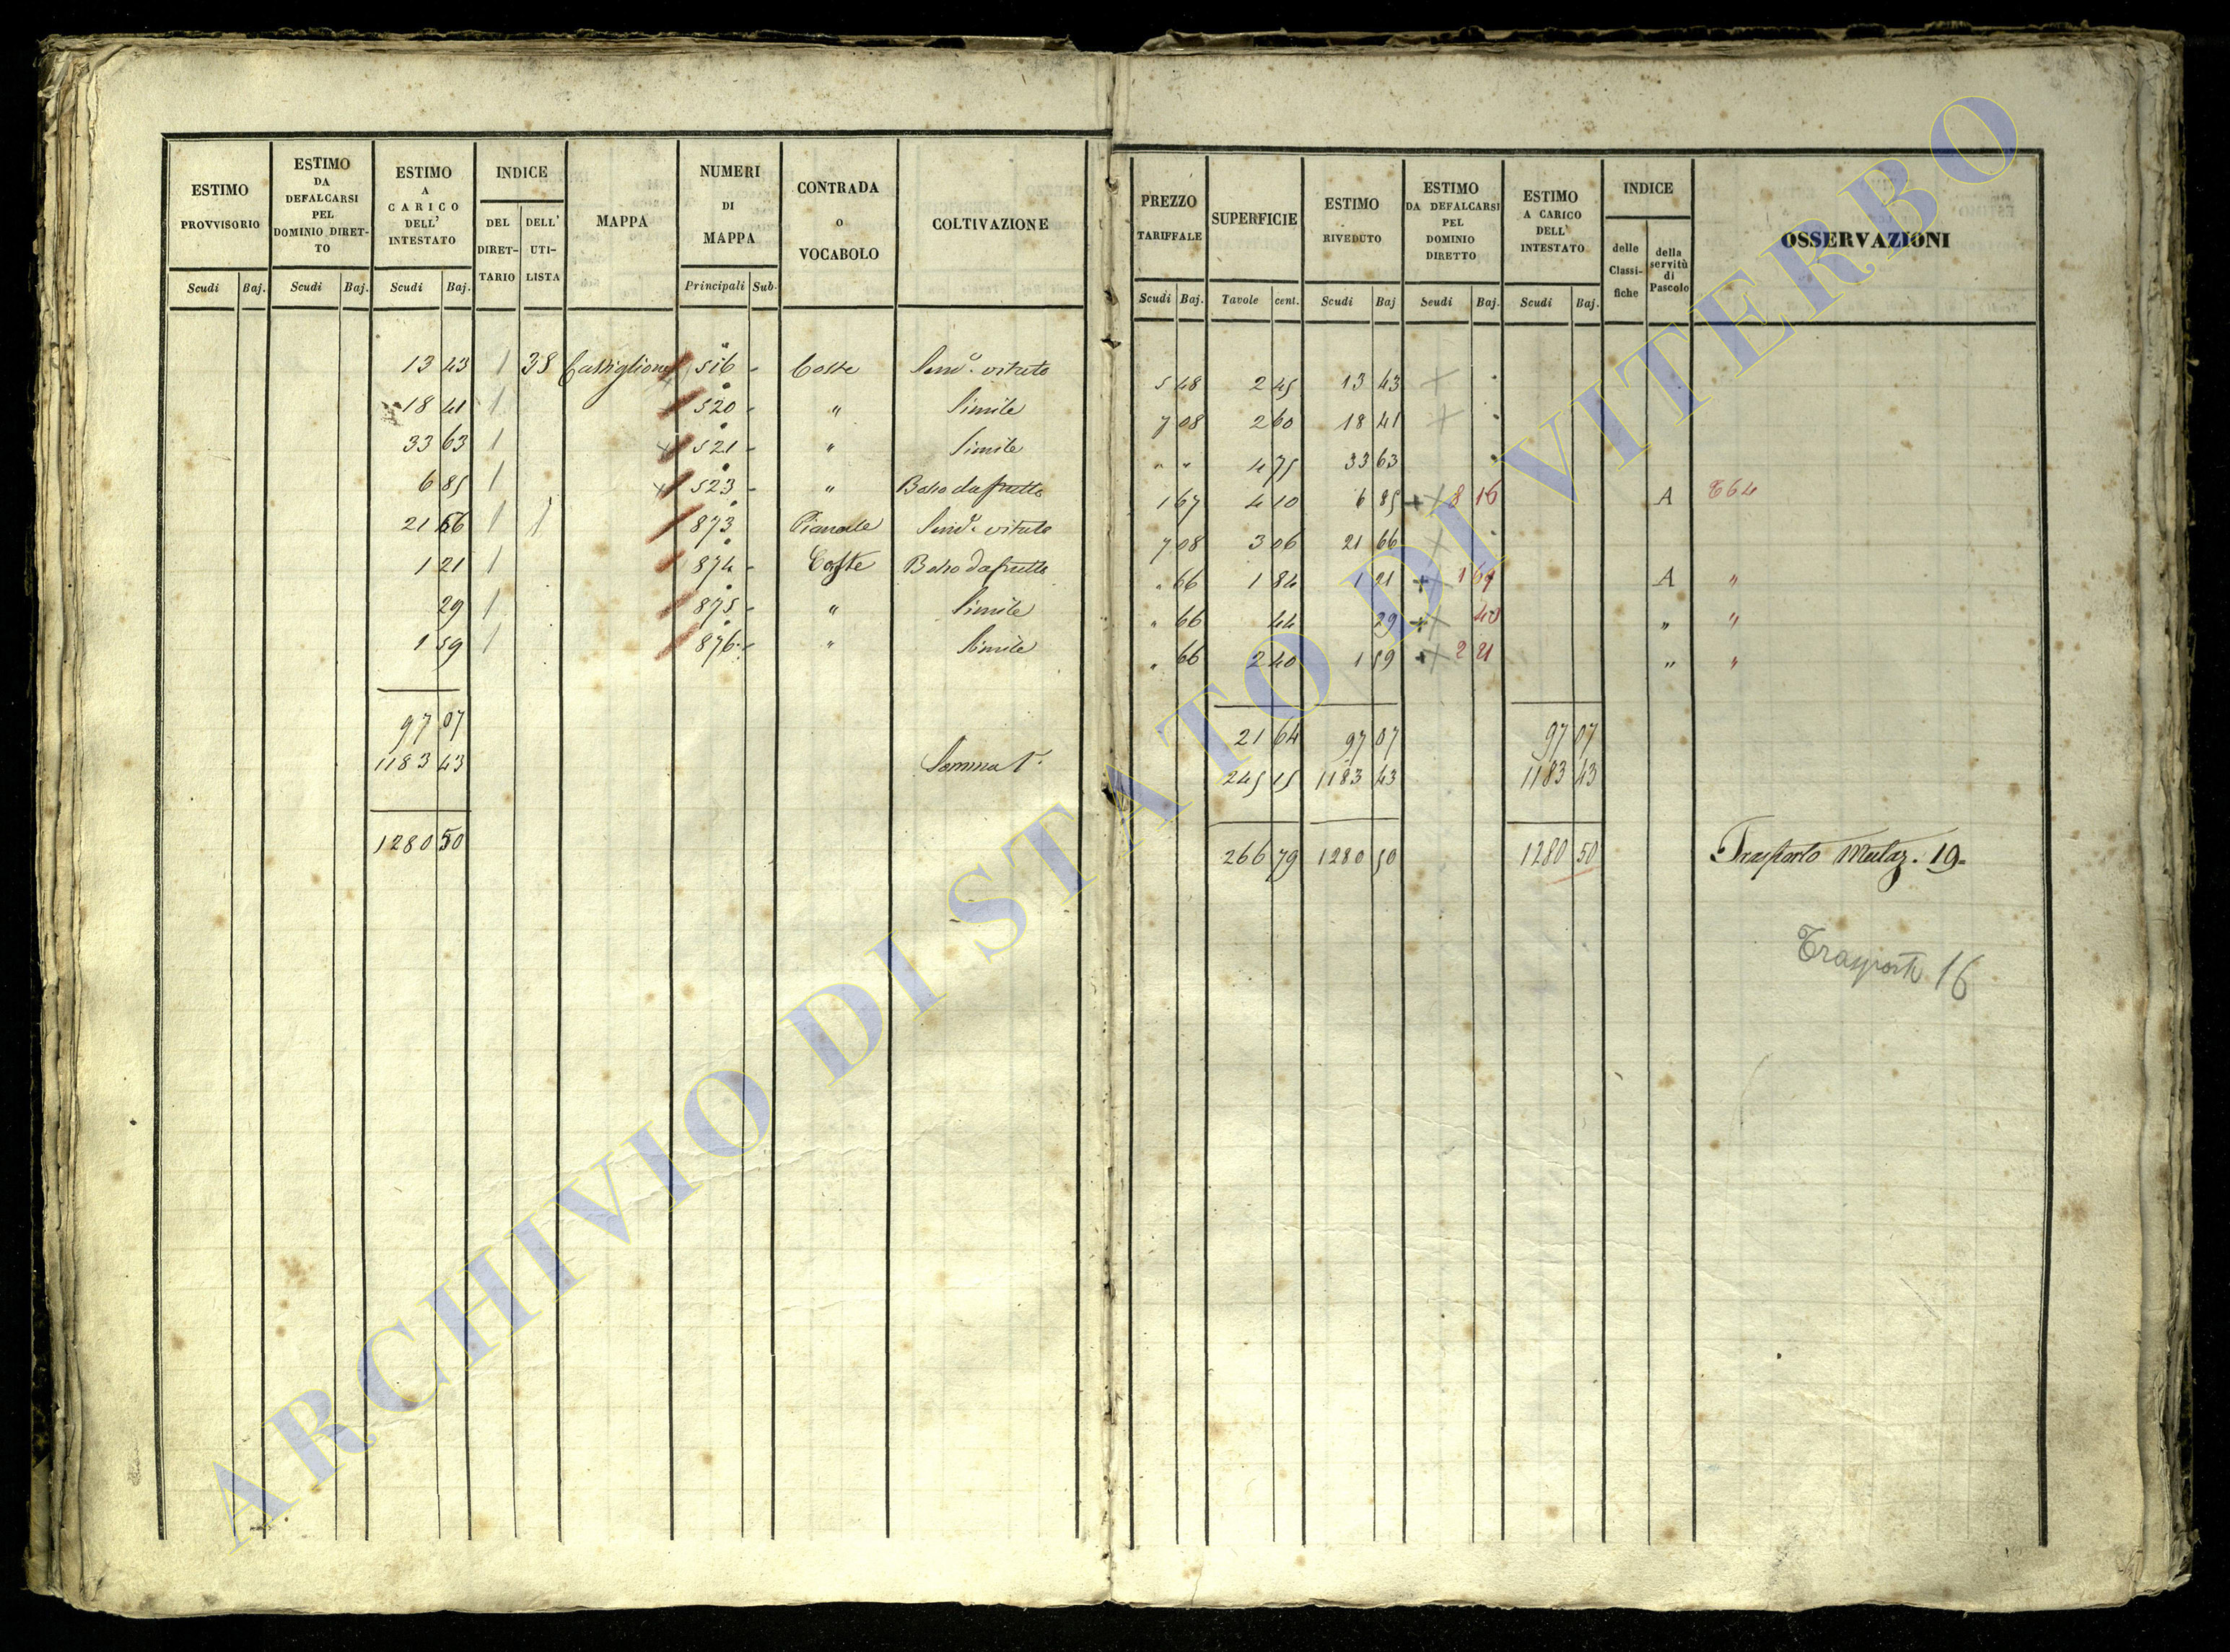 ESTIMO PROVVISORIO
ESTIMO DA DEFALCARSI PEL DOMINIO DIRET-TO
ESTIMO A CARICO DELL' INTESTATO
INDICE
DEL DIRET-TARIO
DELL' UTI-LISTA
MAPPA
NUMERI DI MAPPA
CONTRADA O VOCABOLO
COLTIVAZIONE
Scudi Baj. Scudi Baj. Scudi Baj. Principali Sub.
13 43 1 38 Castiglione 516 - Coste Semo. vitato
18 41 1 520 - " Simile
33 63 1 521 - " Simile
6 85 1 523 - " Bosco da frutto
21 66 1 1 873 Pianale Semo. vitato
1 21 1 874 - Coste Bosco da frutto
29 1 875 - " Simile
1 59 1 876 - " Simile
97 07
1183 43 Somma 1a.
1280 50
PREZZO TARIFFALE
SUPERFICIE
ESTIMO RIVEDUTO
ESTIMO DA DEFALCARSI PEL DOMINIO DIRETTO
ESTIMO A CARICO DELL' INTESTATO
INDICE
delle Classi-fiche
della servitù di Pascolo
OSSERVAZIONI
Scudi Baj. Tavole cent. Scudi Baj Scudi Baj. Scudi Baj.
5 48 2 45 13 43
7 08 2 60 18 41
" " 4 75 33 63
1 67 4 10 6 85 8 16 A T64
7 08 3 06 21 66
" 66 1 84 1 21 1 69 A "
" 66 44 29 40 " "
" 66 2 40 1 59 2 21 " "
21 64 97 07 97 07
245 15 1183 43 1183 43
266 79 1280 50 1280 50 Trasporto 19
Trasporti 16
ARCHIVIO DI STATO DI VITERBO